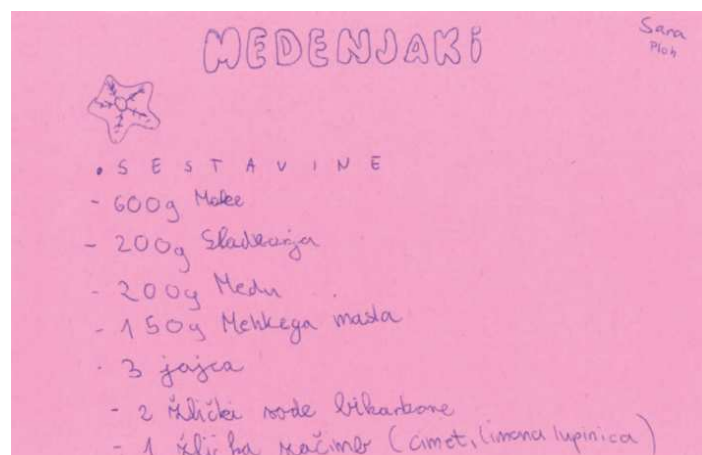 MEDENJAKI
Sara
Ploh
• SESTAVINE
- 600g Moke
- 200g Sladkorja
- 200g Medu
- 150g Mehkega masla
- 3 jajca
- 2 žlički sode bikarbone
- 1 žlička začimb (cimet, limona lupinica)